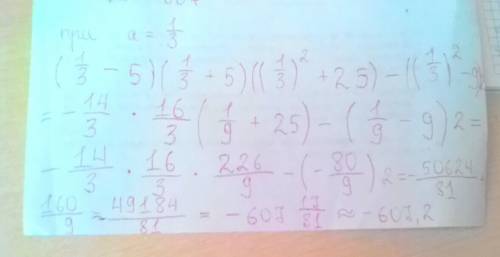 при a = 1/3
(1/3 - 5)(1/3 + 5)((1/3)² + 25) - ((1/3)² - 9)
= - 14/3 · 16/3 (1/9 + 25) - (1/9 - 9) 2 =
- 14/3 · 16/3 · 226/9 - (- 80/9) 2 = - 50624/81
160/9 = 49184/81 = - 607 17/81 ≈ - 607,2